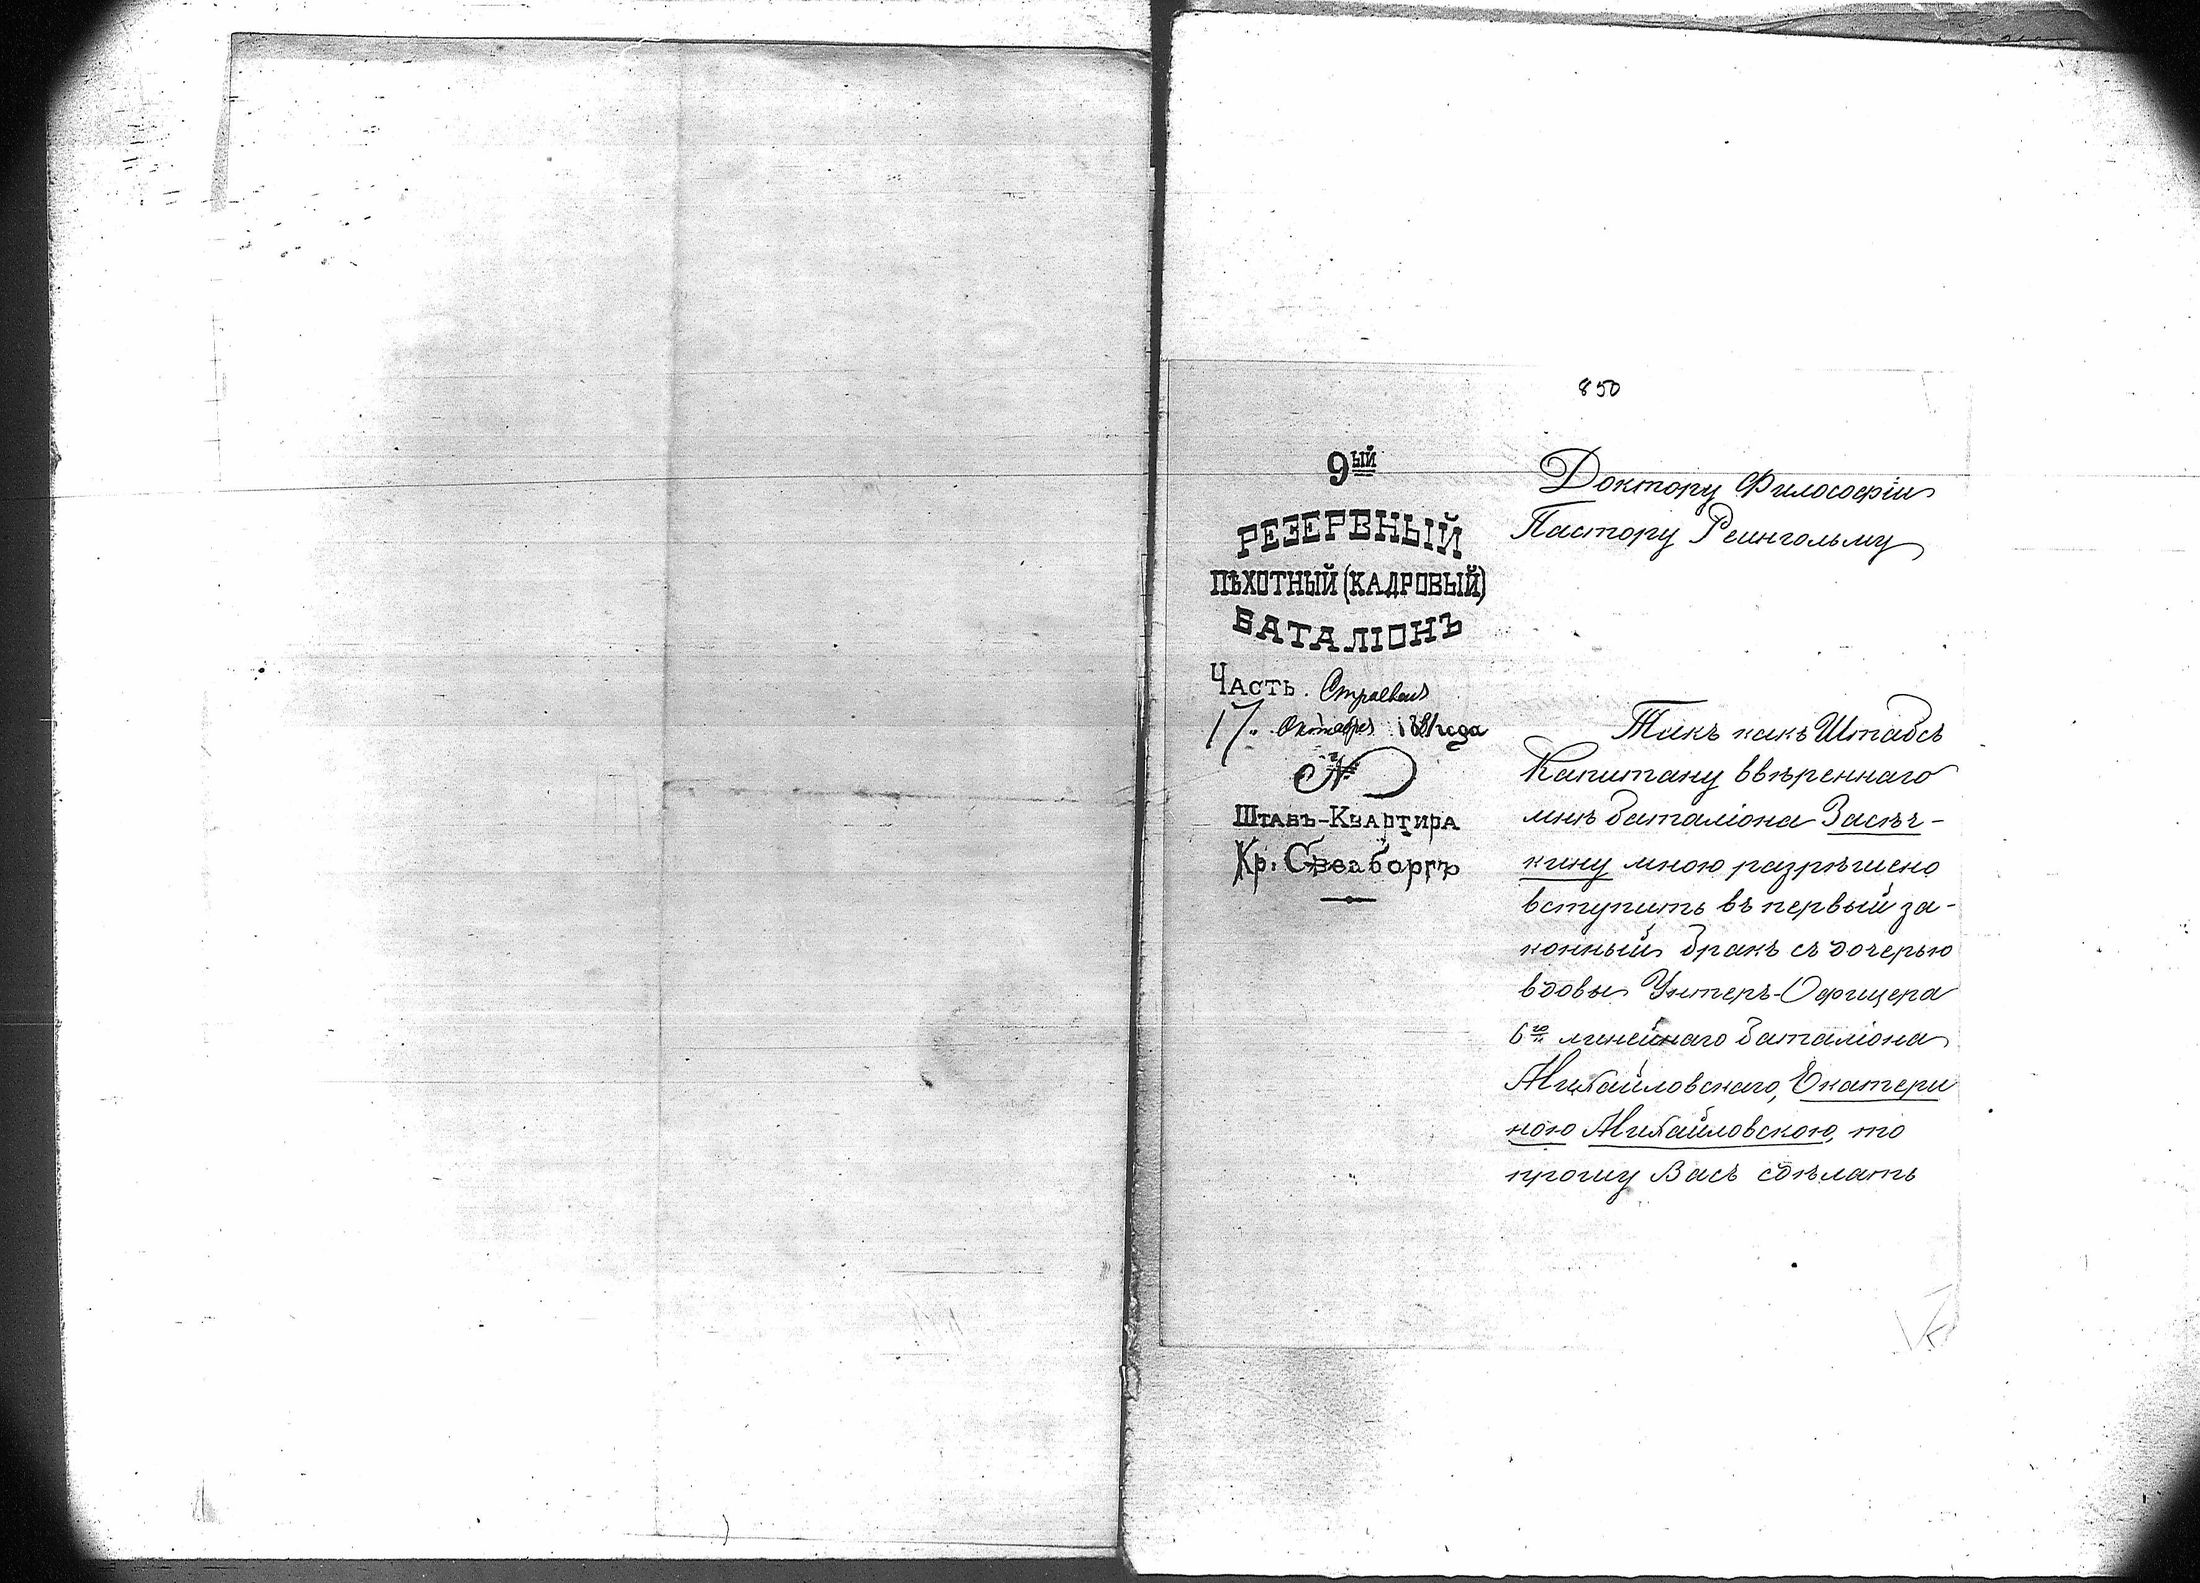 850
9ый
РЕЗЕРВНЫЙ
ПѢХОТНЫЙ (КАДРОВЫЙ)
БАТАЛІОНЪ
Часть. Строевая
17„ Октября 1881 года
№
Штабъ-Квартира
Кр. Свеаборгъ
Доктору Философіи
Пастору Реингольму
Такъ какъ Штабсъ
Капитану ввѣреннаго
мнѣ баталіона Засѣч-
кину мною разрѣшено
вступить въ первый за-
конный бракъ съ дочерью
вдовы Унтеръ-Офицера
6го линейнаго баталіона
Михайловскаго, Екатери
ною Михайловскою, то
прошу Васъ сдѣлать